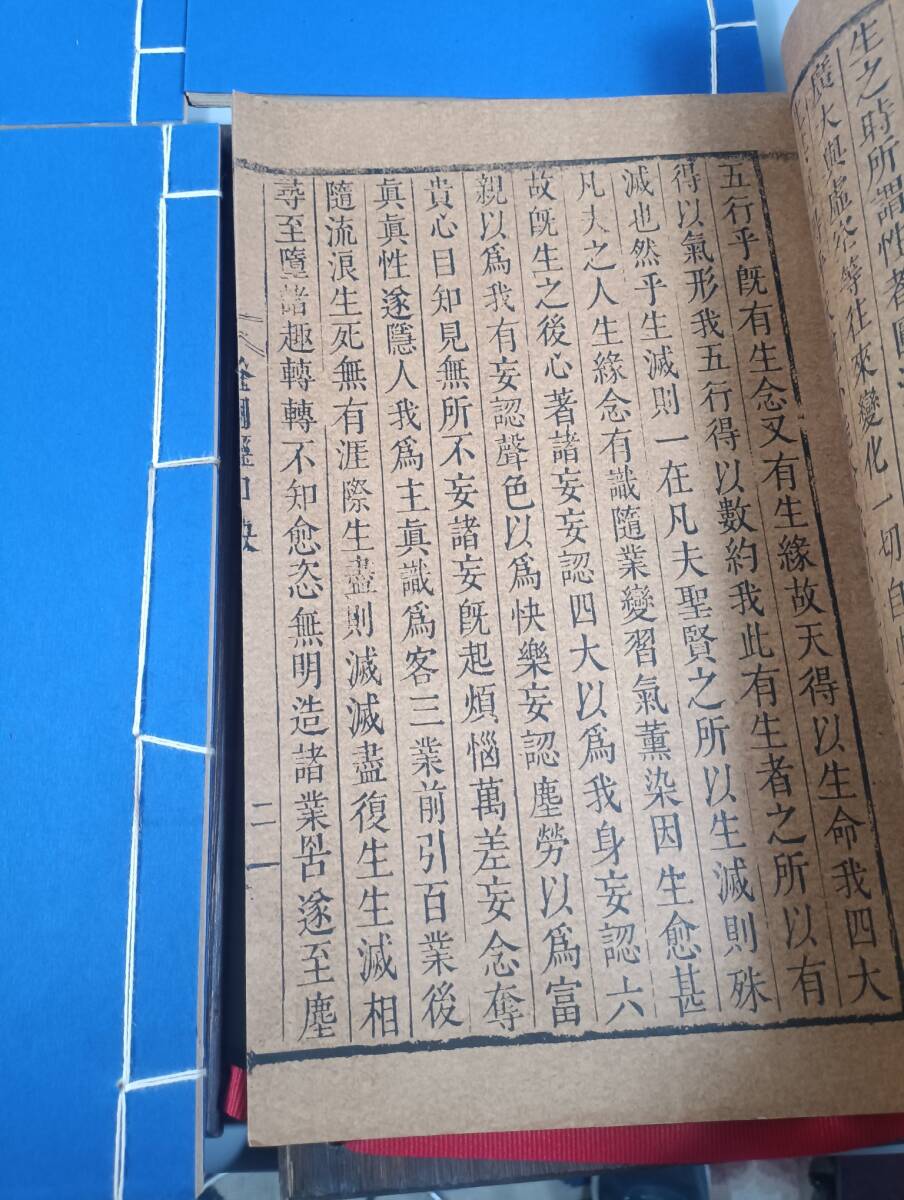 生之時所謂性者圓
廣大與虛空等往來變化一切自
五行乎旣有生念又有生緣故天得以生命我四大
得以氣形我五行得以數約我此有生者之所以有
滅也然乎生滅則一在凡夫聖賢之所以生滅則殊
凡夫之人生緣念有識隨業變習氣薰染因生愈甚
故旣生之後心著諸妄妄認四大以爲我身妄認六
親以爲我有妄認聲色以爲快樂妄認塵勞以爲富
貴心目知見無所不妄諸妄旣起煩惱萬差妄念奪
眞眞性遂隱人我爲主眞識爲客三業前引百業後
隨流浪生死無有涯際生盡則滅滅盡復生生滅相
尋至墮諸趣轉轉不知愈恣無明造諸業罟遂至塵
金剛經口訣
二